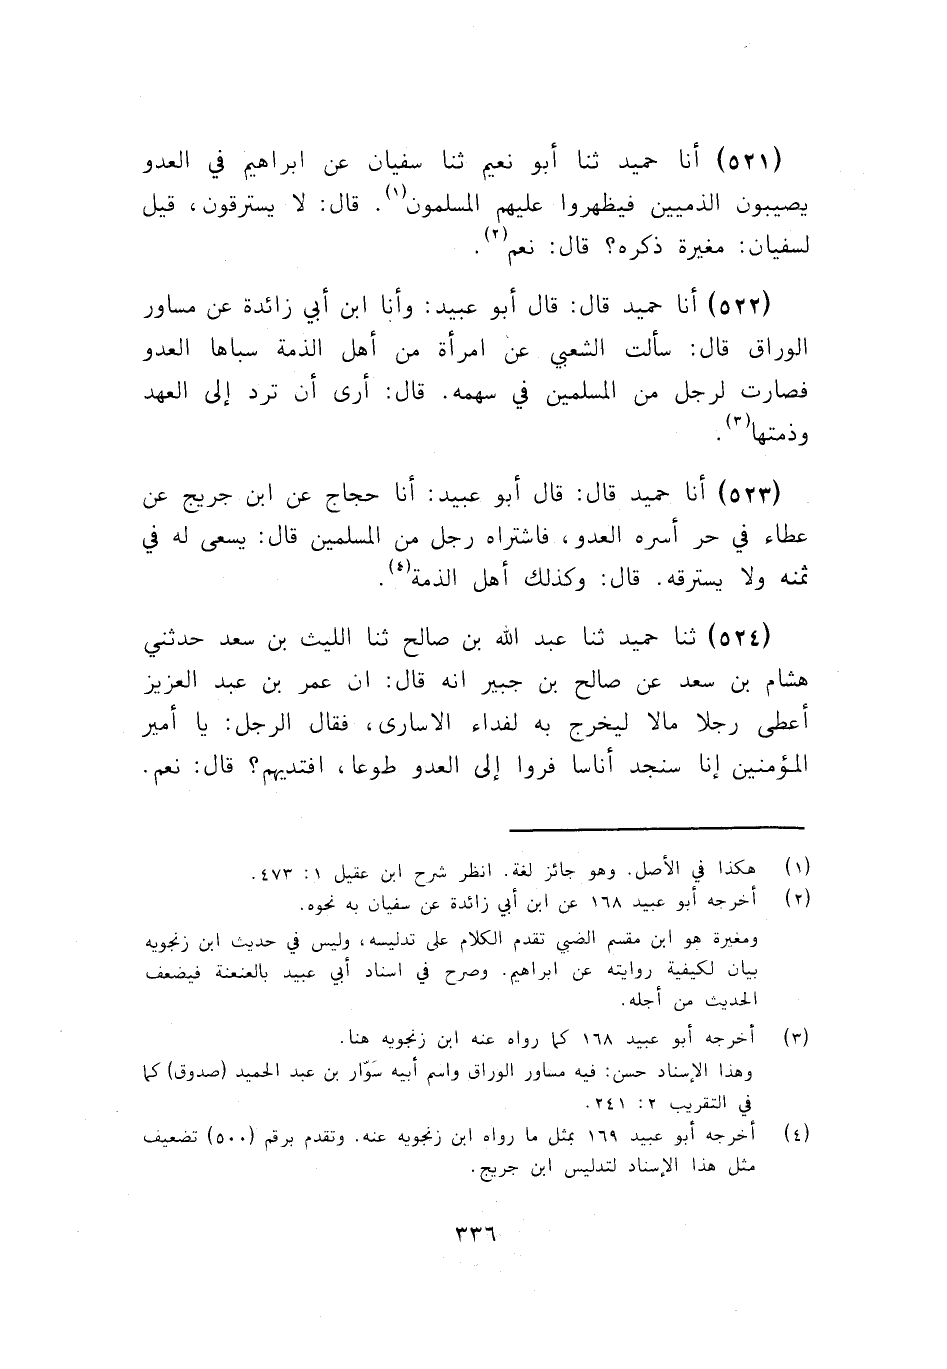 (٥٢١) أنا حميد ثنا أبو نعيم ثنا سفيان عن ابراهيم في العدو
يصيبون الذميين فيظهروا عليهم المسلمون(١). قال: لا يسترقون، قيل
لسفيان: مغيرة ذكره؟ قال: نعم(٢).
(٥٢٢) أنا حميد قال: قال أبو عبيد: وأنا ابن أبي زائدة عن مساور
الوراق قال: سألت الشعبي عن امرأة من أهل الذمة سباها العدو
فصارت لرجل من المسلمين في سهمه. قال: أرى أن ترد إلى العهد
وذمتها(٣).
(٥٢٣) أنا حميد قال: قال أبو عبيد: أنا حجاج عن ابن جريج عن
عطاء في حر أسره العدو، فاشتراه رجل من المسلمين قال: يسعى له في
ثمنه ولا يسترقه. قال: وكذلك أهل الذمة(٤).
(٥٢٤) ثنا حميد ثنا عبد الله بن صالح ثنا الليث بن سعد حدثني
هشام بن سعد عن صالح بن جبير انه قال: ان عمر بن عبد العزيز
أعطى رجلا مالا ليخرج به لفداء الاسارى، فقال الرجل: يا أمير
المؤمنين إنا سنجد أناسا فروا إلى العدو طوعا، افتديهم؟ قال: نعم.
(١) هكذا في الأصل. وهو جائز لغة. انظر شرح ابن عقيل ١: ٤٧٣.
(٢) أخرجه أبو عبيد ١٦٨ عن ابن أبي زائدة عن سفيان به نحوه.
ومغيرة هو ابن مقسم الضبي تقدم الكلام على تدليسه، وليس في حديث ابن زنجويه
بيان لكيفية روايته عن ابراهيم. وصرح في اسناد أبي عبيد بالعنعنة فيضعف
الحديث من أجله.
(٣) أخرجه أبو عبيد ١٦٨ كما رواه عنه ابن زنجويه هنا.
وهذا الإسناد حسن: فيه مساور الوراق واسم أبيه سَوّار بن عبد الحميد (صدوق) كما
في التقريب ٢: ٢٤١.
(٤) أخرجه أبو عبيد ١٦٩ بمثل ما رواه ابن زنجويه عنه. وتقدم برقم (٥٠٠) تضعيف
مثل هذا الإسناد لتدليس ابن جريج.
٣٣٦